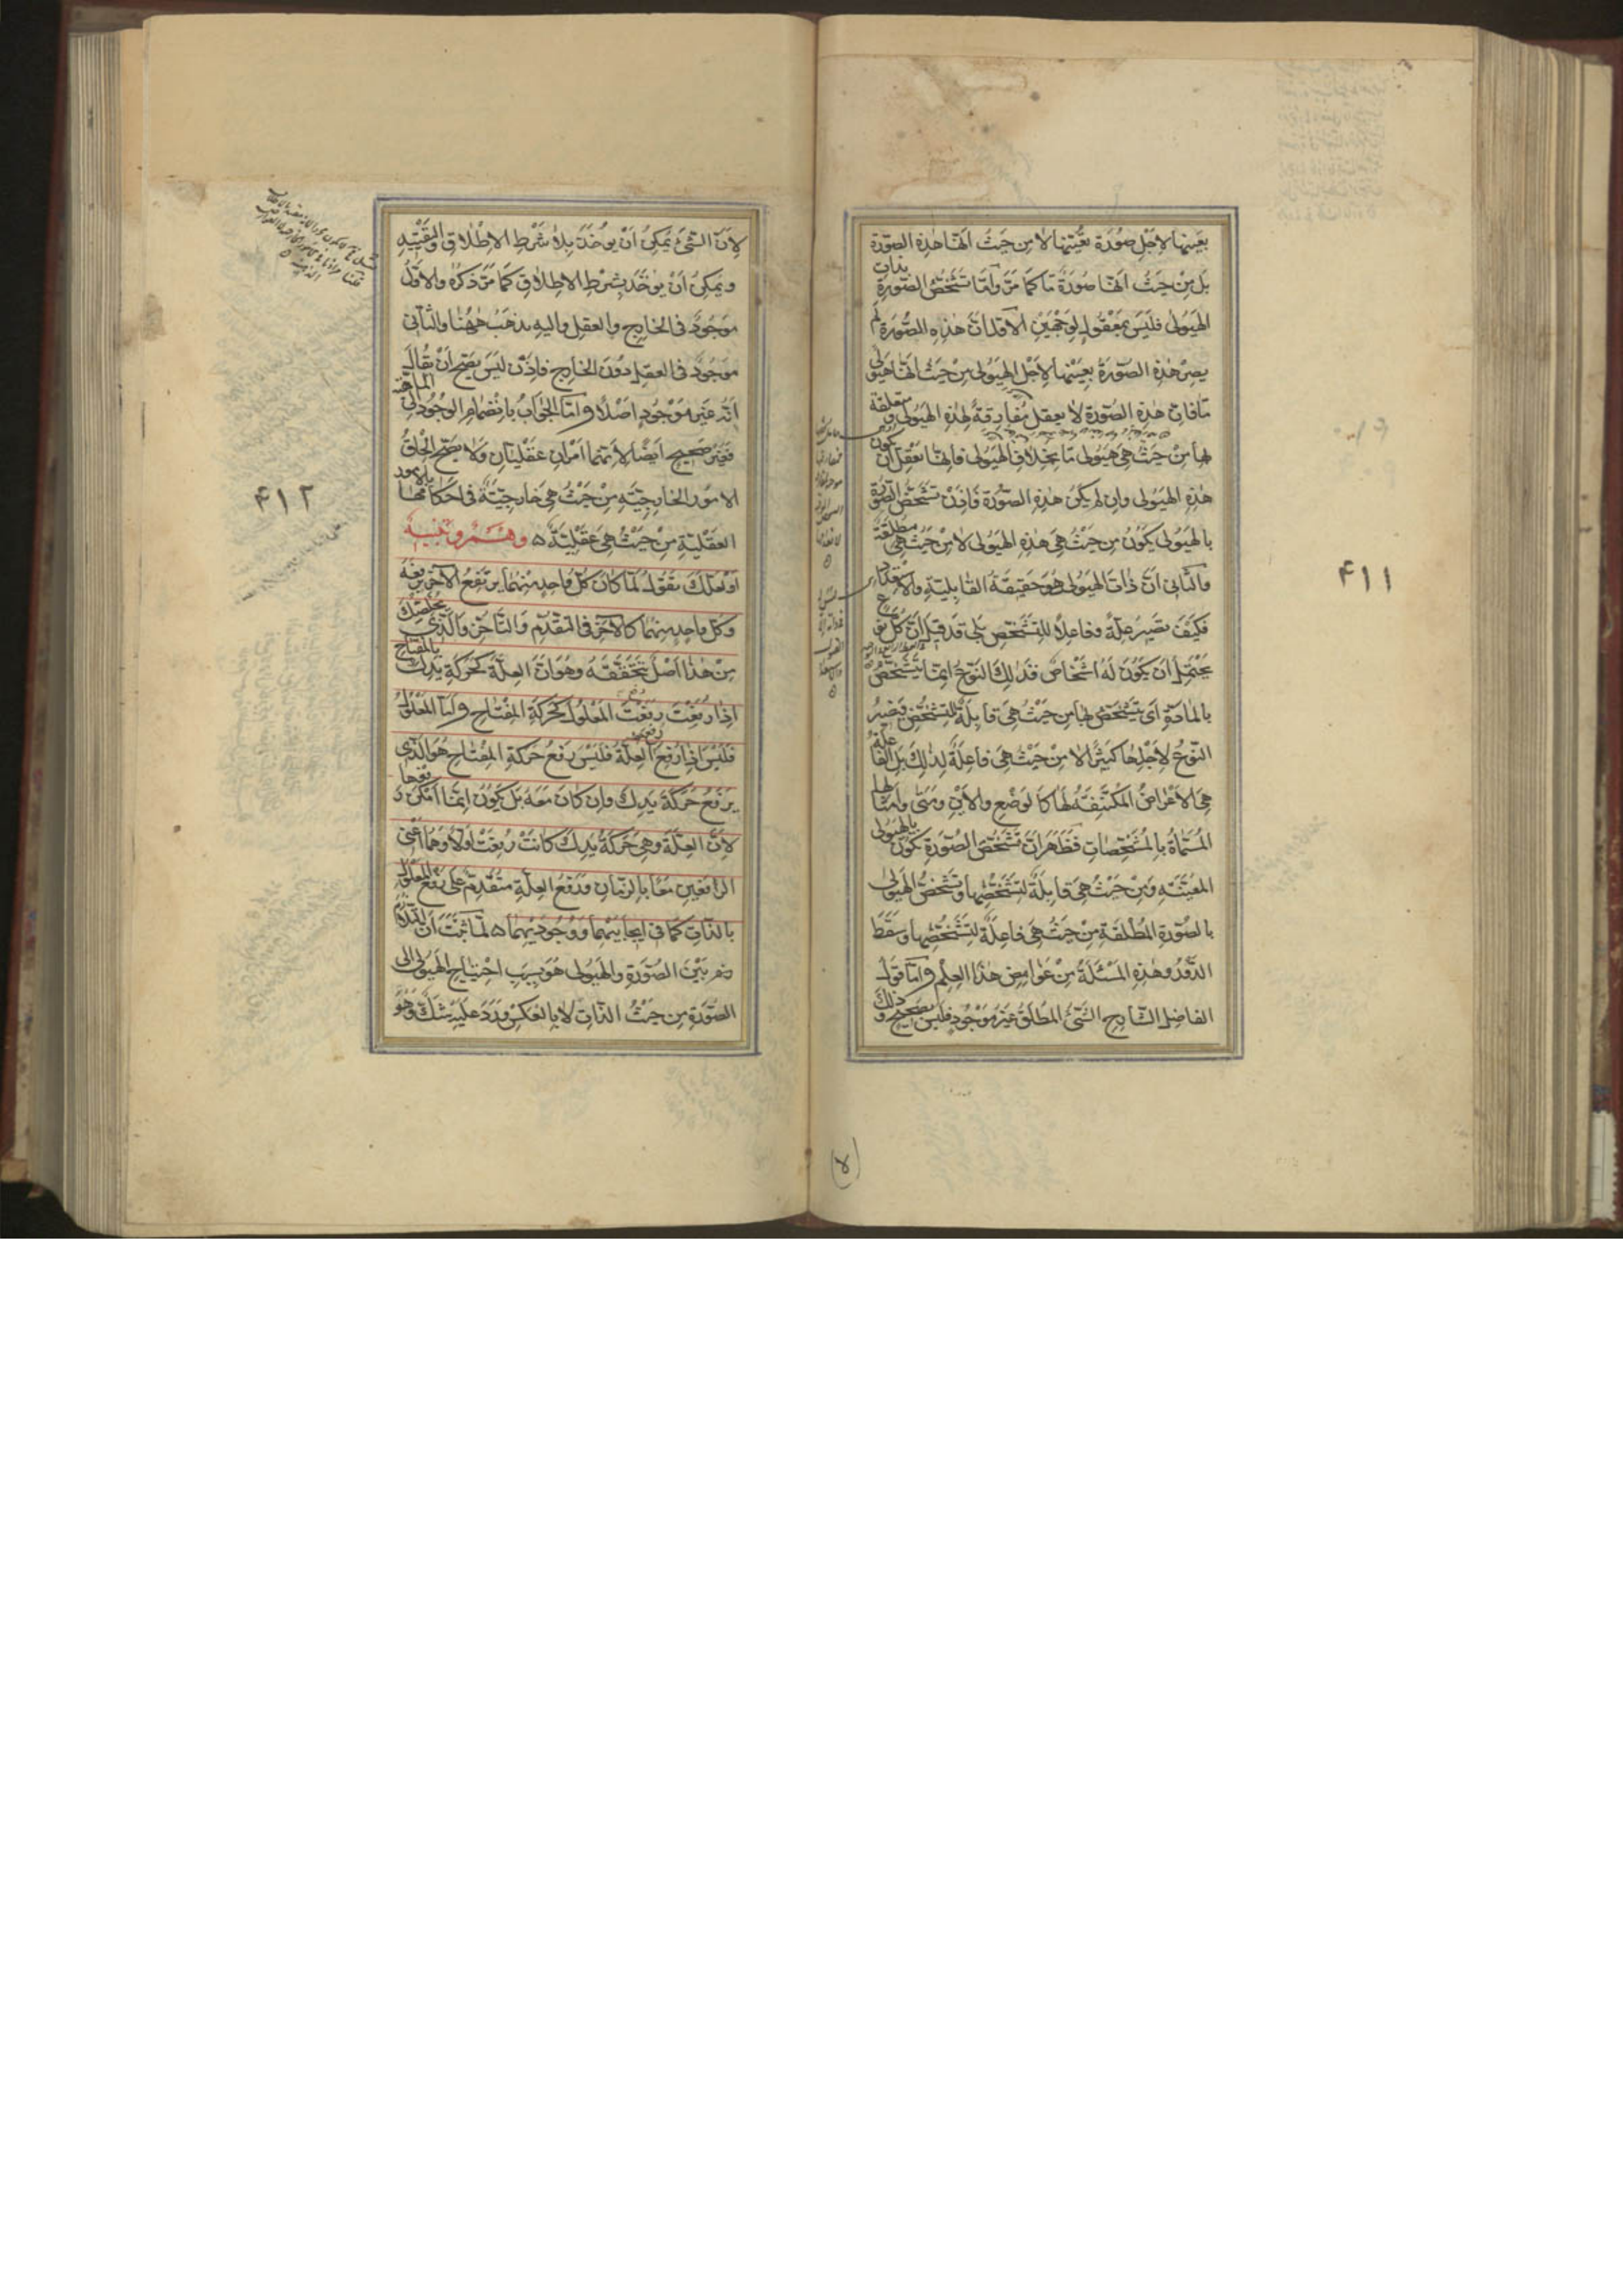 بعينها لاجل صورة بعينها لا من حيث انها هذه الصورة
بل من حيث انها صورة ما كما مر واما تشخص الصورة بذات
الهيولى فليس بمعقول لوجهين الاول ان هذه الصورة لم
يصر هذه الصورة بعينها لاجل الهيولى من حيث انها هيولى
ما فان هذه الصورة لا يعقل مفارقة لهذه الهيولى ومتعلقة
لها من حيث هي هيولى ما بخلاف الهيولى فانها تعقل ان تكون
هذه الهيولى وان لم يكن هذه الصورة فاذن تشخص الصورة
بالهيولى يكون من حيث هي هذه الهيولى لا من حيث هي مطلقة
والثاني ان ذات الهيولى هو حقيقة القابلية والاستعداد
فكيف تصير علة وفاعلا للتشخص بلى قد قيل ان كل نوع
يحتمل ان يكون له اشخاص فذلك النوع انما يتشخص
بالمادة اى يتشخص لها من حيث هي قابلة للتشخص فيصير
النوع لاجلها كثيرا لا من حيث هي فاعلة لذلك بل الفاعلة
هي الاعراض المكتنفة لها كالوضع والاين ومتى وامثالها
المسماة بالمشخصات فظهر ان تشخص الصورة يكون بالهيولى
المعينة ومن حيث هي قابلة لتشخصها وتشخص الهيولى
بالصورة المطلقة من حيث هي فاعلة لتشخصها وسقط
الدور وهذه المسئلة من غوامض هذا العلم واما قول
الفاضل الشارح الشئ المطلق غير موجود فليس بصحيح وذلك
۴۱۱
لان الشئ يمكن ان يؤخذ بلا شرط الاطلاق والتقييد
ويمكن ان يؤخذ بشرط الاطلاق كما مر ذكره والاول
موجود في الخارج والعقل واليه نذهب ههنا والثاني
موجود في العقل دون الخارج فاذن ليس يصح ان يقال
انه غير موجود اصلا واما الجواب بانضمام الوجود الى الماهية
فغير صحيح ايضا لانهما امران عقليان ولا يصح الحاق
الامور الخارجية من حيث هي خارجية في احكامها بالامور
العقلية من حيث هي عقلية ه وهم وتنبيه
او لعلك تقول لما كان كل واحد منهما يرتفع الآخر برفعه
وكل واحد منهما كالآخر في التقدم والتأخر والذي يخلصك
من هذا اصل تتحققه وهو ان العلة كحركة يدك بالمفتاح
اذا رفعت رفعت المعلول كحركة المفتاح واما المعلول
فليس اذا رفع رفع العلة فليس رفع حركة المفتاح هو الذي
يرفع حركة يدك وان كان معه بل يكون انما امكن رفعها
لان العلة وهي حركة يدك كانت رفعت اولا وهما اعنى
الرافعين معا بالزمان ورفع العلة متقدم على رفع المعلول
بالذات كما في ايجابيهما ووجوديهما ه لما ثبت ان التلازم
بين الصورة والهيولى هو بسبب احتياج الهيولى الى
الصورة من حيث الذات لا بالعكس ورد عليه شك وهو
۴۱۲